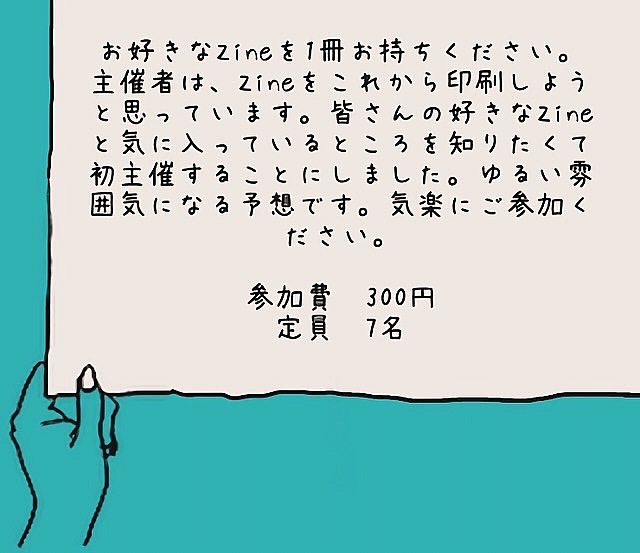 お好きなZineを1冊お持ちください。
主催者は、Zineをこれから印刷しよう
と思っています。皆さんの好きなZine
と気に入っているところを知りたくて
初主催することにしました。ゆるい雰
囲気になる予想です。気楽にご参加く
ださい。
参加費　300円
定員　7名